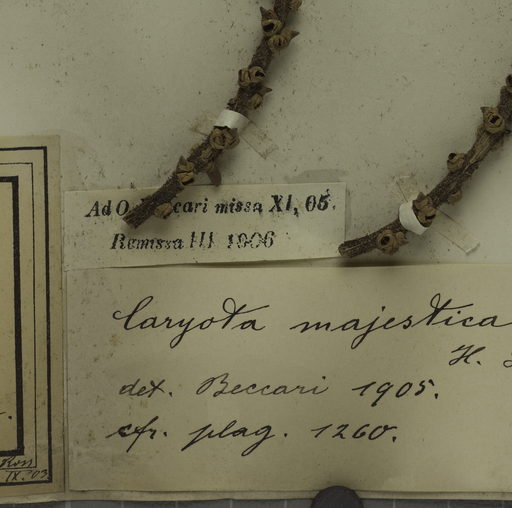 Ad O. Beccari missa XI, 05.
Remissa III 1906
Caryota majestica
H.
det. Beccari 1905.
cfr. plag. 1260.
Ross
IX. 03